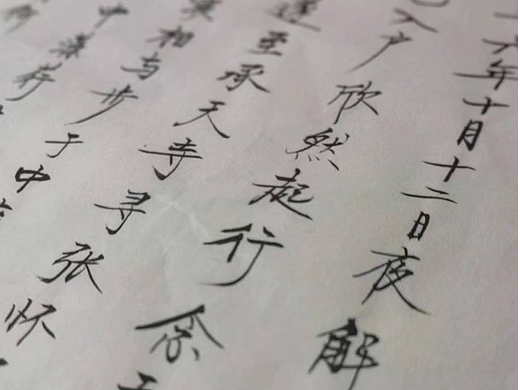 六年十月十二日夜解
入户欣然起行念
遂至承天寺寻张怀
相与步于中
中藻荇